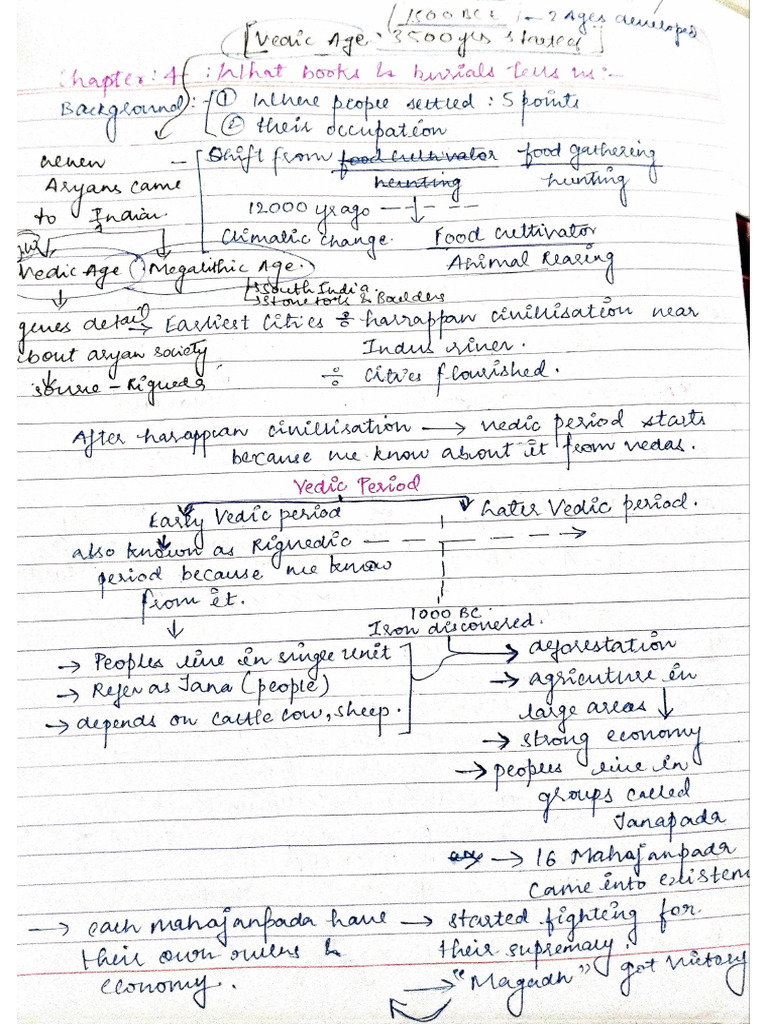 1500 BCE - 2 Ages developed
[Vedic Age. 3500 yrs started]
Chapter: 4 : What books & burials tells us:-
Background:- ① Where people settled : 5 points
② their occupation
when
Aryans came
to India.
- Shift from food cultivator food gathering
hunting hunting
12000 yr ago
Climatic change. Food cultivator
Animal Rearing
Vedic Age Megalithic Age.
South India.
Stone tools &
genes detail
about aryan society
source - Rigveda
→ Earliest Cities ÷ harrappan civillisation near
Indus river.
÷ Cities flourished.
After harappan civillisation → vedic period starts
because we know about it from vedas.
Vedic Period
Early Vedic period
Later Vedic period.
also known as Rigvedic
period because we know
from it.
1000 BC.
Iron discovered.
→ Peoples live in single unit
→ Refer as Jana (people)
→ depends on cattle cow, sheep.
→ deforestation
→ agriculture in
large areas
→ strong economy
→ peoples live in
groups called
Janapada
→ 16 Mahajanpada
came into existen
→ each mahajanpada have
their own rulers &
economy.
→ started fighting for
their supremacy.
→ "Magadh" got victory